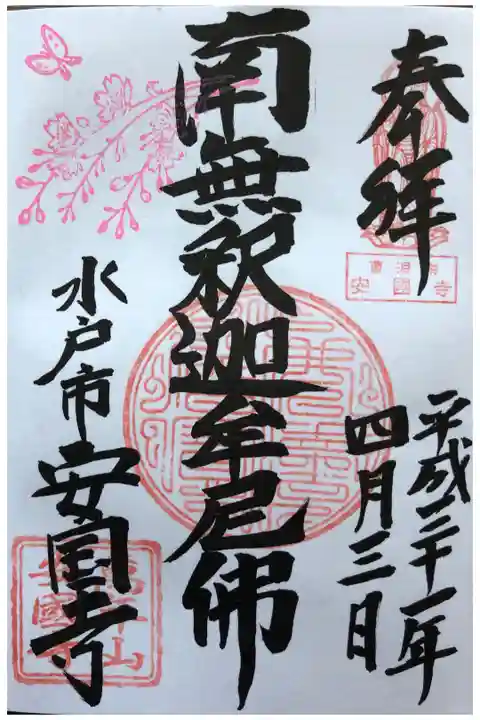 奉拝
曹洞宗
安國寺
平成三十一年
四月三日
南無釈迦牟尼佛
水戸市
安国寺